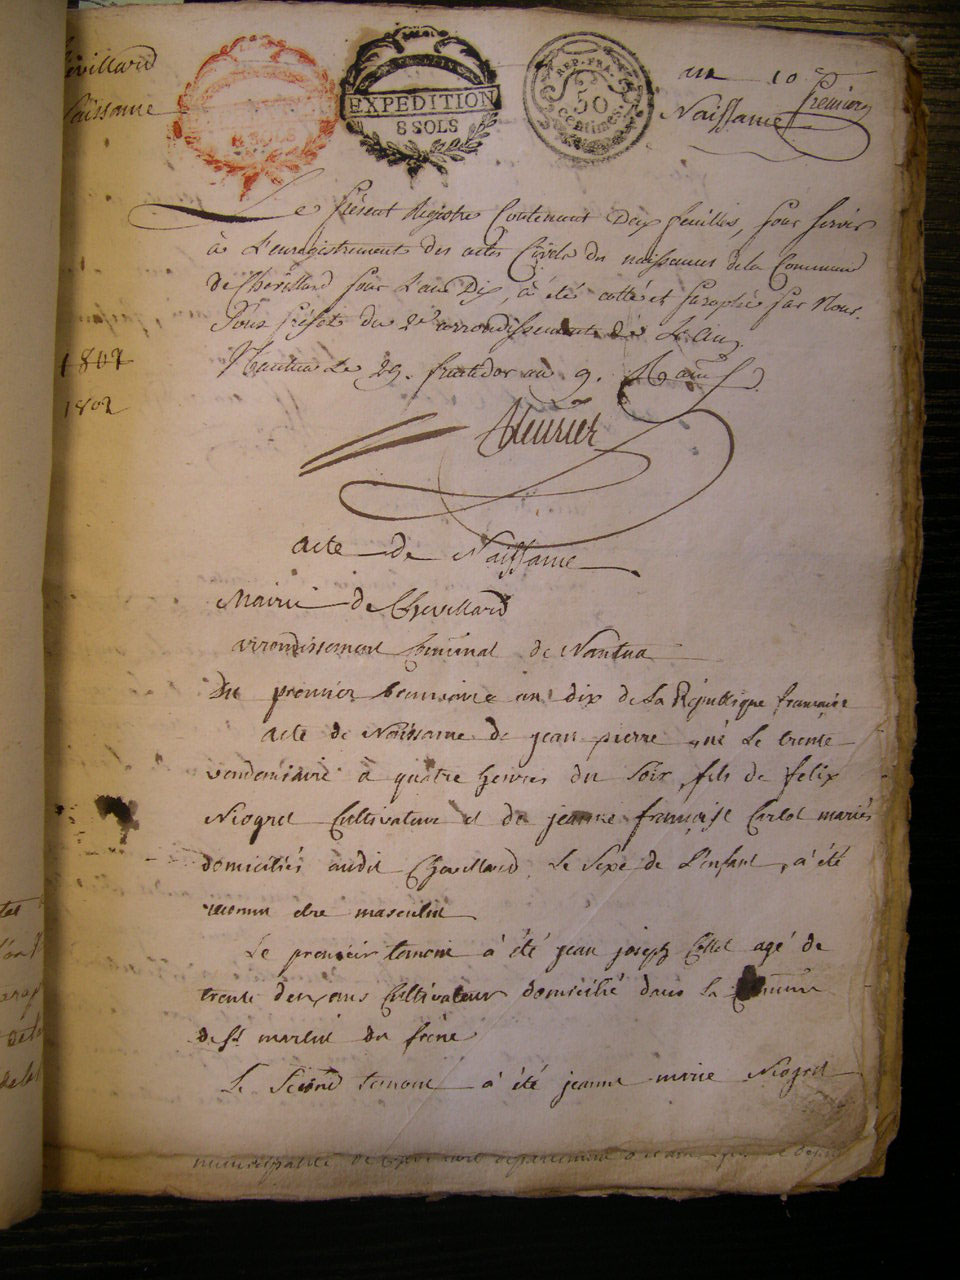 Chevillard
Naissance
EXPEDITION
8 SOLS
8 SOLS
REP. FRA.
50
centimes
an 10
Premier
Naissance
Le présent Registre Contenant Dix feuilles, pour servir
à L'enregistrement des actes Civils des naissances de la Commune
de Chevillard pour L'an Dix, à été cotté et paraphé par Nous.
Sous préfet du 2e arrondissement de L'ain,
Nantua Le 29. fructidor an 9.
1801
1802
acte de Naissance
Mairie de Chevillard
arrondissement Communal de Nantua
Du premier brumaire an dix de La République française
acte de Naissance de jean pierre né Le trente
vendemiaire à quatre heures du Soir, fils de felix
Niogret Cultivateur et de jeanne françoise Carlot mariés
domiciliés audit Chevillard, Le Sexe de L'enfant à été
reconnu etre masculin
Le premier temoin à été jean joseph agé de
trente deux ans Cultivateur domicilié dans La Commune
de St martin du frene
Le Second temoin à été jeanne marie Niogret
municipalité de departement